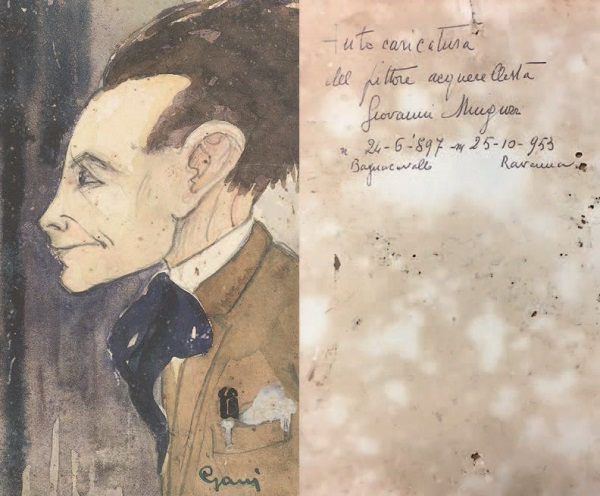 Gani
Auto caricatura
del pittore acquerellista
Giovanni
n 24-6-'897 - m 25-10-953
Bagnacavallo Ravenna